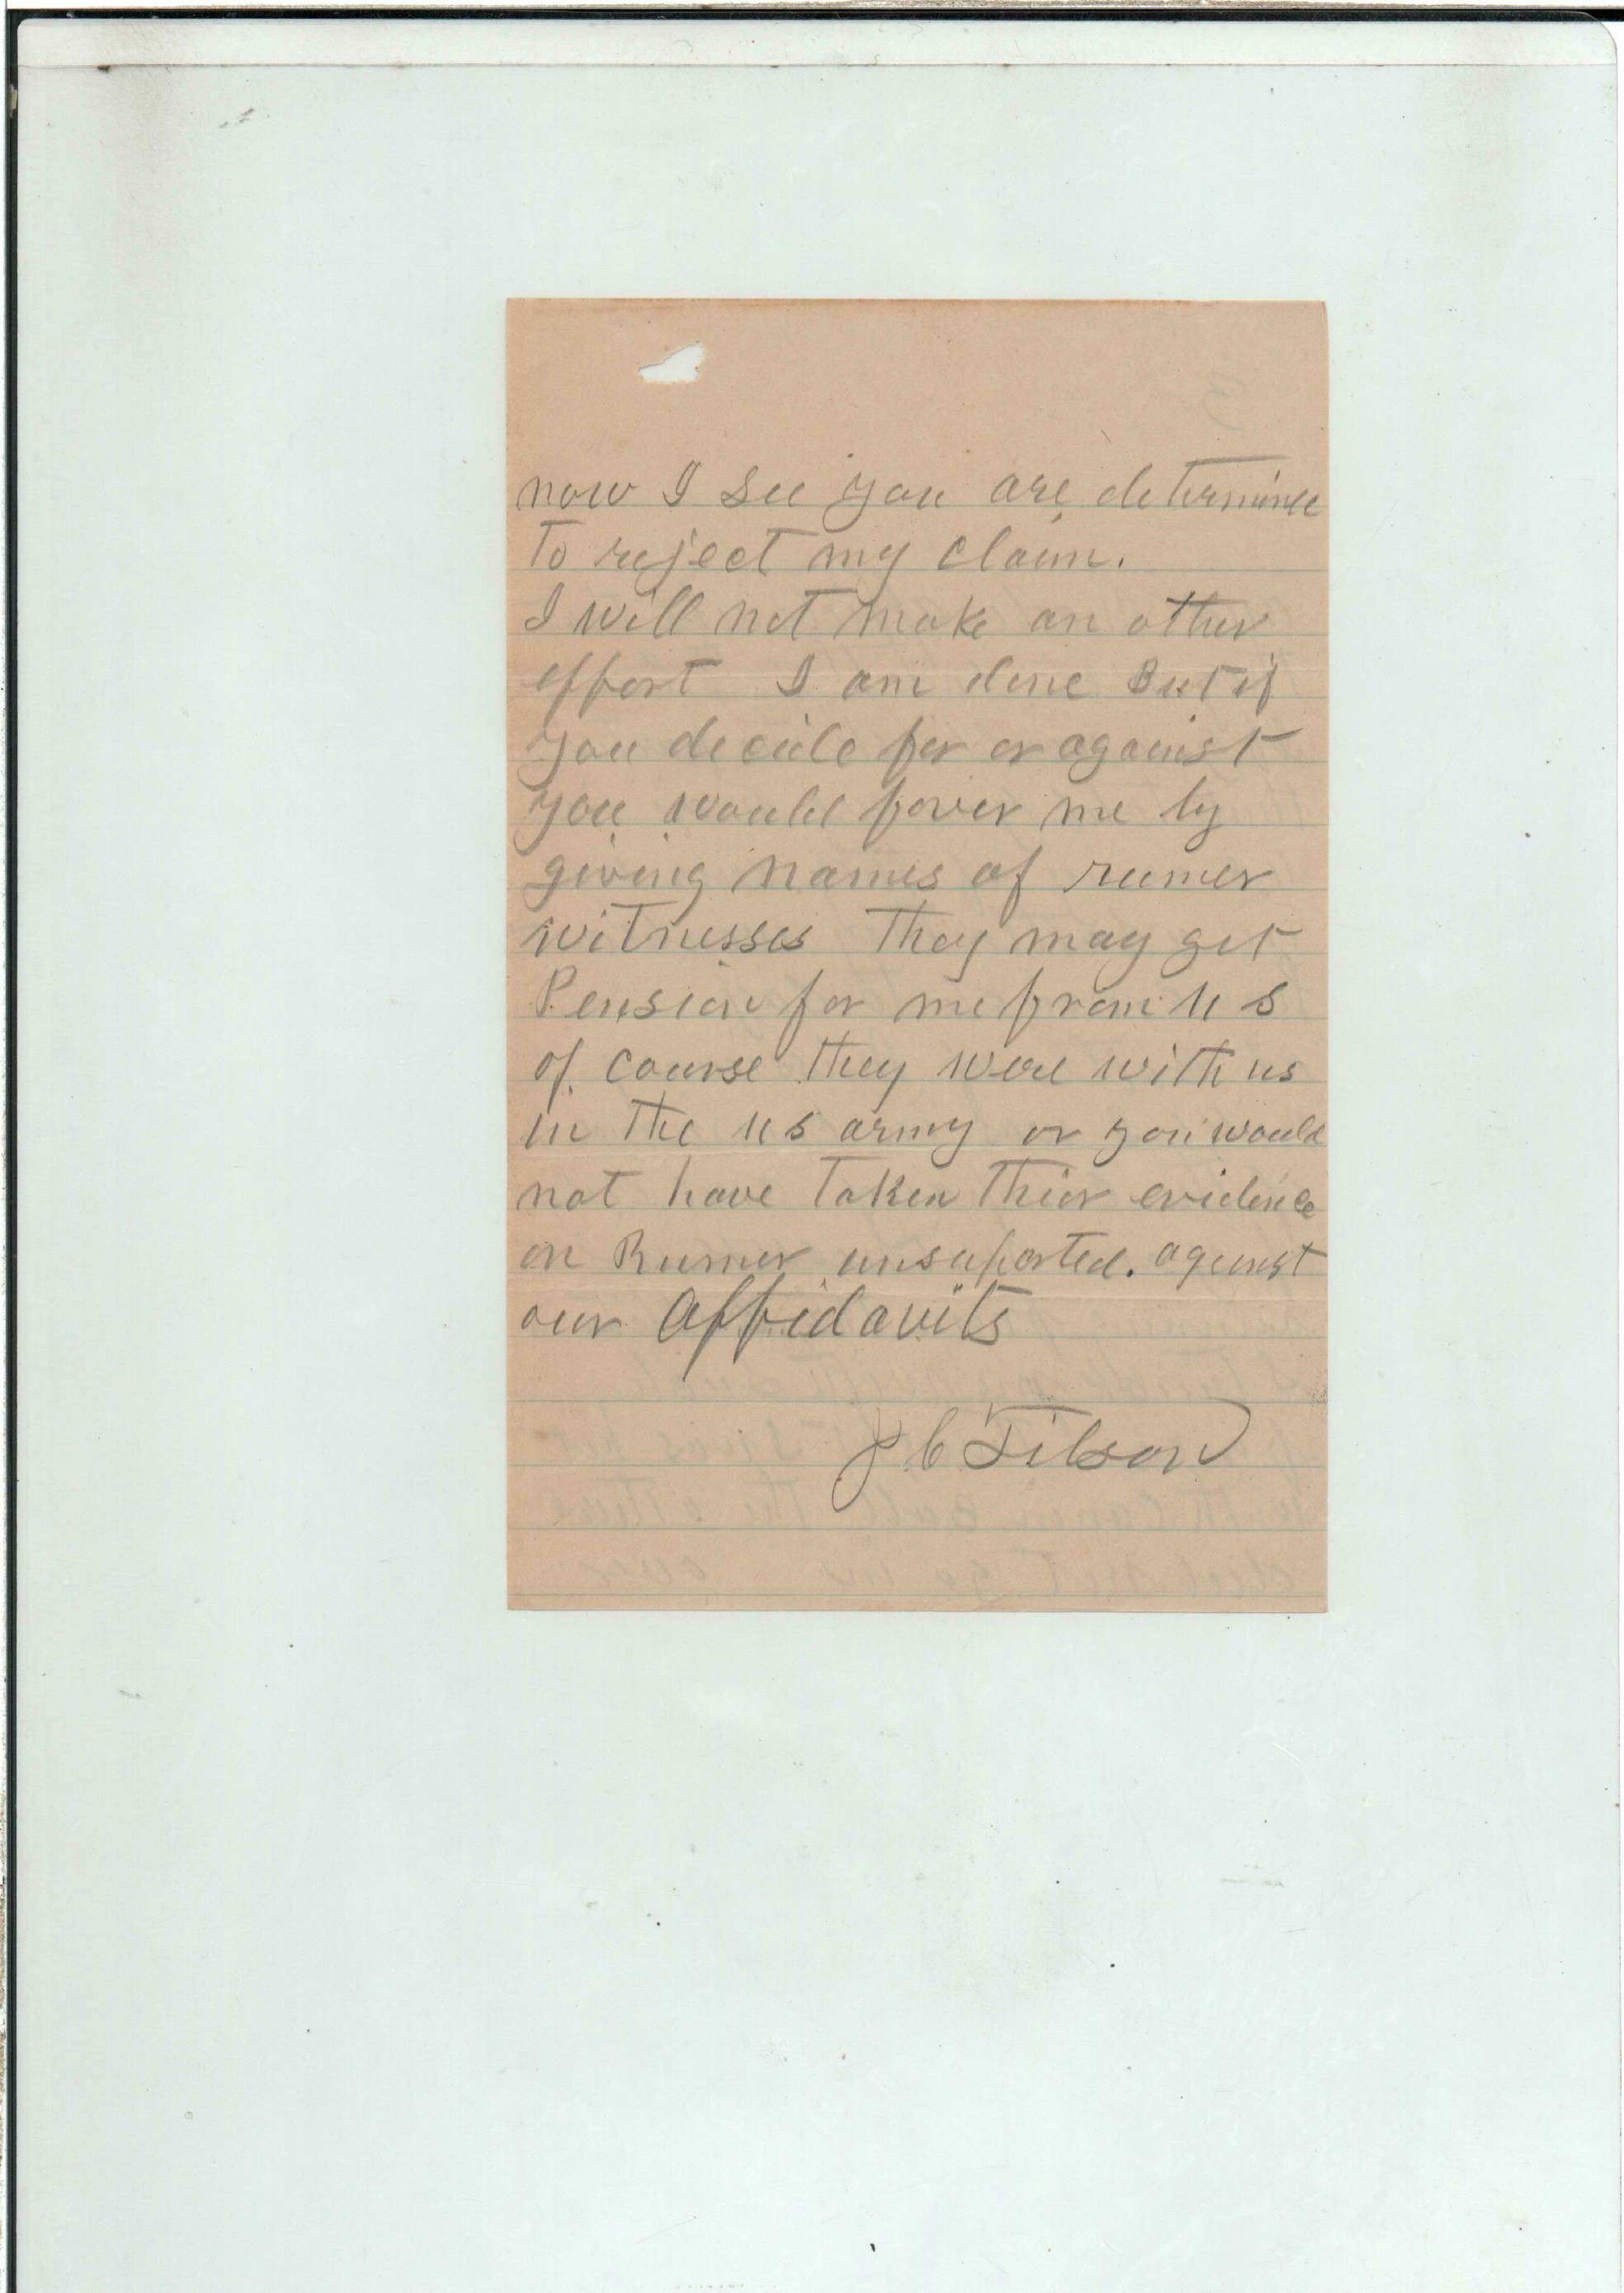 now I see you are determined
to reject my claim.
I will not make an other
effort I am done But if
you decide for or against
you would faver me by
giving names of rumer
witnesses They may get
Pension for me from U S
of course they were with us
in The U S army or you would
not have Taken Thier evidence
on Rumer unsuported. against
our Affidavits
J C Tilson